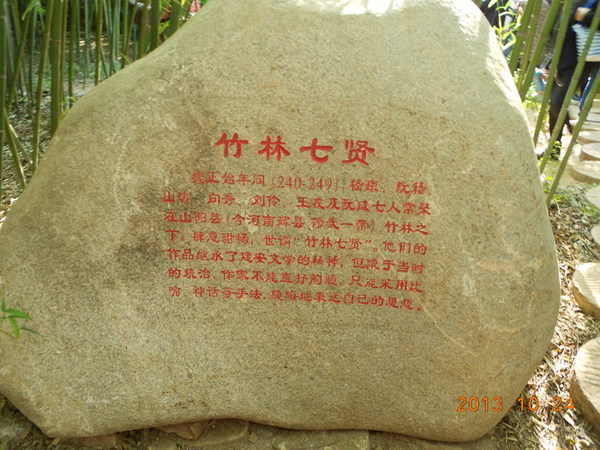 竹林七贤
魏正始年间(240-249),嵇康、阮籍、
山涛、向秀、刘伶、王戎及阮咸七人常聚
在山阳县(今河南辉县、修武一带)竹林之
下,肆意酣畅,世谓“竹林七贤”。他们的
作品继承了建安文学的精神,但限于当时
的统治,作家不能直抒胸臆,只能采用比
喻、神话等手法,隐晦地表达自己的思想。
2013.10.24